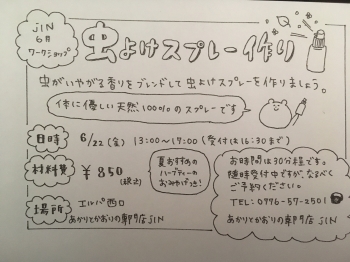 JIN
6月
ワークショップ
虫よけスプレー作り
虫がいやがる香りをブレンドして虫よけスプレーを作りましょう。
体に優しい天然100%のスプレーです
日時 6/22(金) 13:00〜17:00(受付は16:30まで)
材料費 ¥850
(税込)
夏おすすめの
ハーブティーの
おみやげつき!
場所 エルパ西口
あかりとかおりの専門店JIN
お時間は30分程です。
随時受付中ですが、なるべく
ご予約ください。
TEL:0776-57-2501
あかりとかおりの専門店JIN